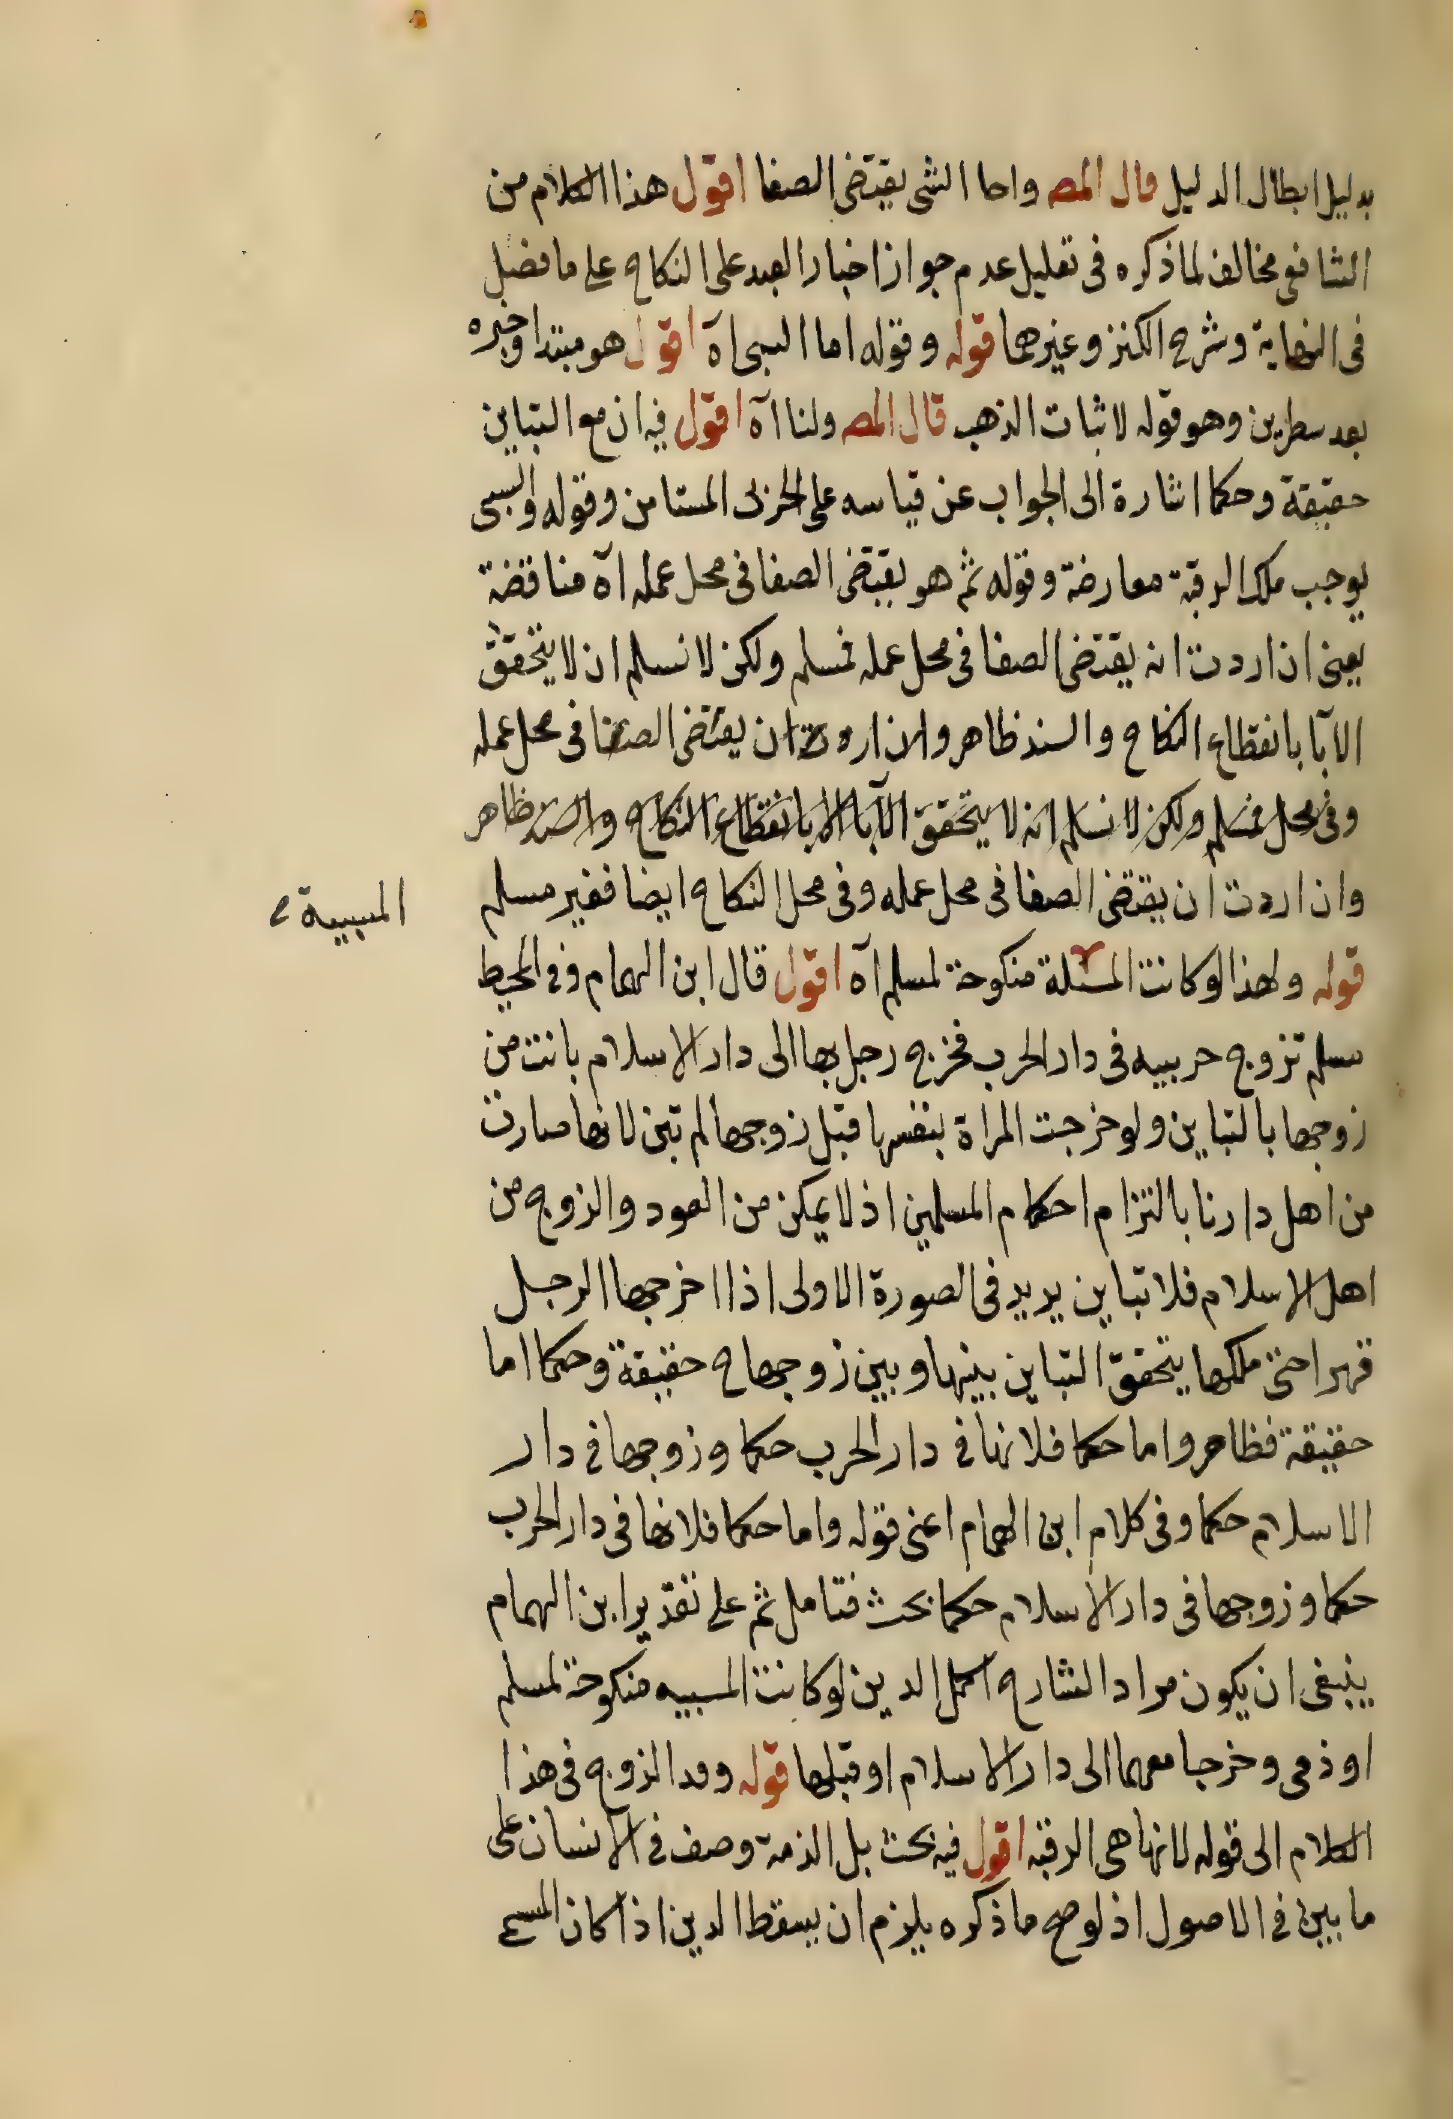 بدليل ابطال الدليل قال المص واما السبى يقتضى الصفا اقول هذا الكلام من
الشافعى مخالف لما ذكره فى تعليل عدم جواز اخبار العبد على النكاح على ما فصل
فى النهاية وشرح الكنز وغيرهما قوله وقوله اما السبى اه اقول هو مبتدا وخبره
بعد سطرين وهو قوله لاثبات الذهب قال المص ولنا اه اقول فيه ان مع التباين
حقيقة وحكما اشارة الى الجواب عن قياسه على الحربى المستامن وقوله والسبى
يوجب ملك الرقبة معارضة وقوله ثم هو يقتضى الصفا فى محل عمله اه مناقضة
يعنى ان اردت انه يقتضى الصفا فى محل عمله فمسلم ولكن لا نسلم ان لا يتحقق
الابا بانقطاع النكاح والسند ظاهر وان اردت ان يقتضى الصفا فى محل عمله
وفى محل فمسلم ولكن لا نسلم انه لا يتحقق الابا الا بانقطاع النكاح والسند ظاهر
وان اردت ان يقتضى الصفا فى محل عمله وفى محل النكاح ايضا فغير مسلم
المسبية
قوله ولهذا لو كانت المسئلة منكوحة لمسلم اه اقول قال ابن الهمام وفى المحيط
مسلم تزوج حربيه فى دار الحرب فخرج رجل بها الى دار الاسلام بانت من
زوجها بالتباين ولو خرجت المراة بنفسها قبل زوجها لم تبن لانها صارت
من اهل دارنا بالتزام احكام المسلمين اذ لا يمكن من العود والزوج من
اهل الاسلام فلا تباين يريد فى الصورة الاولى اذا اخرجها الرجل
قهرا حتى ملكها يتحقق التباين بينها وبين زوجها ح حقيقة وحكما اما
حقيقة فظاهر واما حكما فلانها فى دار الحرب حكما وزوجها فى دار
الاسلام حكما وفى كلام ابن الهمام اعنى قوله واما حكما فلانها فى دار الحرب
حكما وزوجها فى دار الاسلام حكما بحث فتامل ثم على تقدير ابن الهمام
ينبغى ان يكون مراد الشارح اكمل الدين لو كانت المسبيه منكوحة لمسلم
او ذمى وخرجا معهما الى دار الاسلام او قبلها قوله وقد الزوج فى هذا
الكلام الى قوله لانها هى الرقبة اقول فيه بحث بل الذمة وصف فى الانسان على
ما بين فى الاصول اذ لو صح ما ذكره يلزم ان يسقط الدين اذا كان المسبى